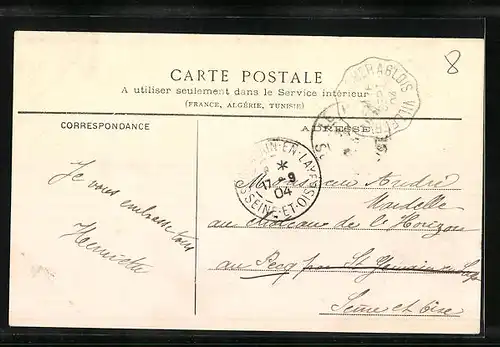 8
CARTE POSTALE
A utiliser seulement dans le Service intérieur
(FRANCE, ALGÉRIE, TUNISIE)
CORRESPONDANCE
ADRESSE
EN-LAYE
*
17 - 9
04
SEINE-ET-OISE
Monsieur André
au château de l'Horizon
au Pecq par St Germain en Laye
Seine et Oise
Je vous embrasse tous
Henriette